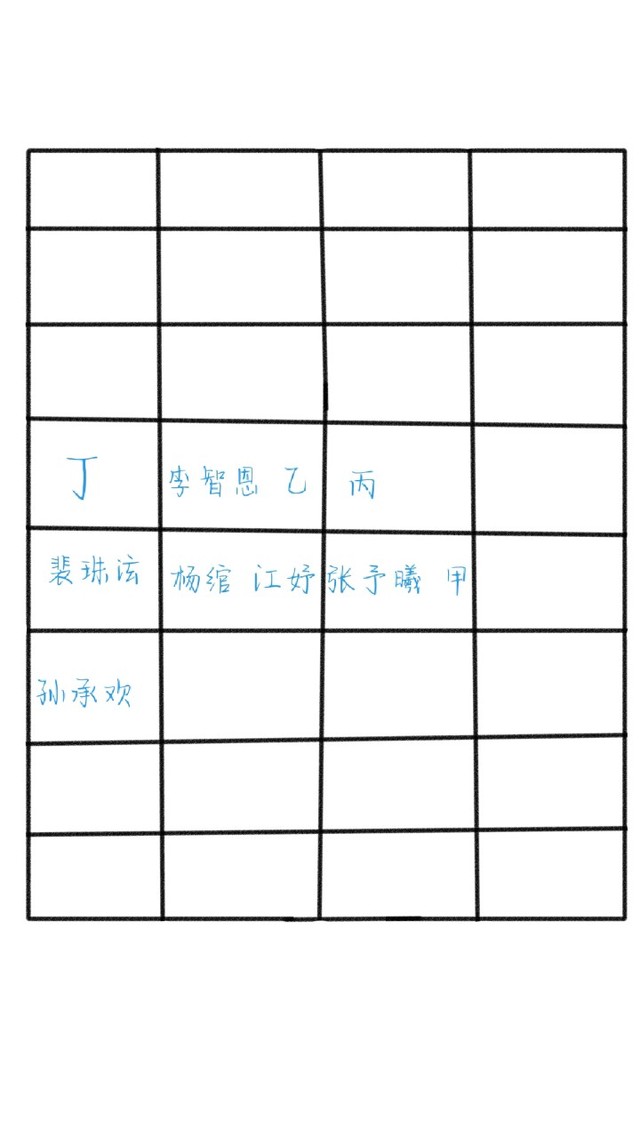 丁 李智恩 乙 丙
裴珠泫 杨绾 江妤 张予曦 甲
孙承欢